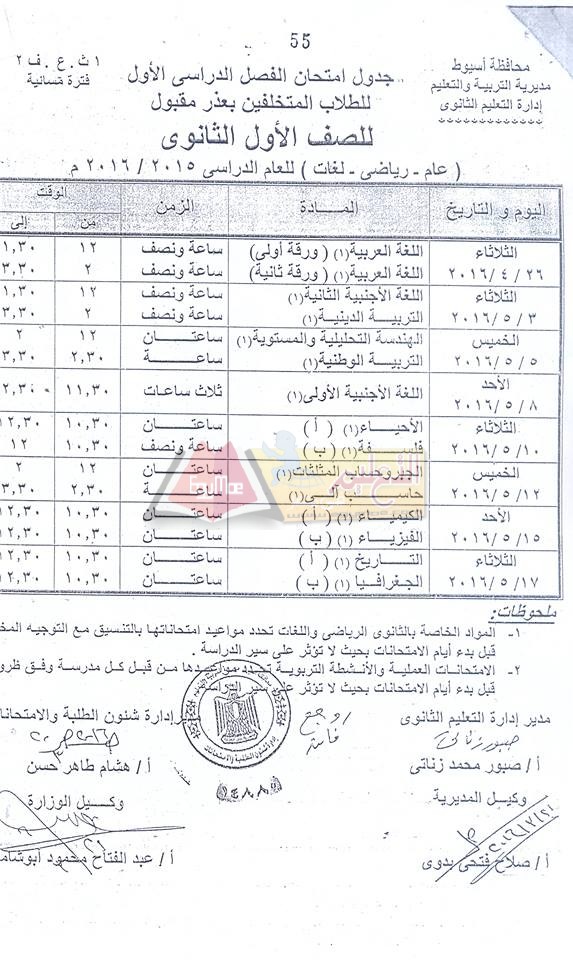 55
محافظة أسيوط
مديرية التربية والتعليم
إدارة التعليم الثانوى
١ ث . ع . ف ٢
فترة مسائية
جدول امتحان الفصل الدراسى الأول
للطلاب المتخلفين بعذر مقبول
للصف الأول الثانوى
( عام - رياضى - لغات ) للعام الدراسى ٢٠١٥ / ٢٠١٦ م
اليوم و التاريخ المـــادة الزمن الوقت
من إلى
الثلاثاء اللغة العربية (١) ( ورقة أولى) ساعة ونصف ١٢ ١,٣٠
٢٠١٦/ ٤ / ٢٦ اللغة العربية (١) ( ورقة ثانية) ساعة ونصف ٢ ٣,٣٠
الثلاثاء اللغة الأجنبية الثانية (١) ساعة ونصف ١٢ ١,٣٠
٢٠١٦/ ٥ / ٣ التربيـــة الدينيـة (١) ساعة ونصف ٢ ٣,٣٠
الخميس الهندسة التحليلية والمستوية (١) ساعتـــــان ١٢ ٢
٢٠١٦/ ٥ / ٥ التربية الوطنية (١) ساعـــــة ٢,٣٠ ٣,٣٠
الأحد
٢٠١٦/ ٥ / ٨ اللغة الأجنبية الأولى (١) ثلاث ساعات ١١,٣٠ ٢,٣٠
الثلاثاء الأحيـــاء (١) ( أ ) ساعتـــــان ١٠,٣٠ ١٢,٣٠
٢٠١٦/ ٥ / ١٠ فلسفة (١) ( ب ) ساعة ونصف ١٠,٣٠ ١٢
الخميس الجبر وحساب المثلثات (١) ساعتـــــان ١٢ ٢
٢٠١٦/ ٥ / ١٢ حاسب آلى (١) ساعـــــة ٢,٣٠ ٣,٣٠
الأحد الكيميـــاء (١) ( أ ) ساعتـــــان ١٠,٣٠ ١٢,٣٠
٢٠١٦/ ٥ / ١٥ الفيزيـاء (١) ( ب ) ساعتـــــان ١٠,٣٠ ١٢,٣٠
الثلاثاء التـــاريخ (١) ( أ ) ساعتـــــان ١٠,٣٠ ١٢,٣٠
٢٠١٦/ ٥ / ١٧ الجغرافيـا (١) ( ب ) ساعتـــــان ١٠,٣٠ ١٢,٣٠
ملحوظات:
١- المواد الخاصة بالثانوى الرياضى واللغات تحدد مواعيد امتحاناتها بالتنسيق مع التوجيه
قبل بدء أيام الامتحانات بحيث لا تؤثر على سير الدراسة .
٢- الامتحانات العملية والأنشطة التربوية تحدد مواعيدها من قبل كل مدرسة وفق
قبل بدء أيام الامتحانات بحيث لا تؤثر على سير الدراسة
مدير إدارة التعليم الثانوى
مدير إدارة شئون الطلبة والامتحانات
أ/ صبور محمد زناتى
أ / هشام طاهر حسن
وكيل المديرية
وكيــل الوزارة
٢٠١٦/٣/٢١
أ/ صلاح فتحى بدوى
أ/ عبد الفتاح محمود